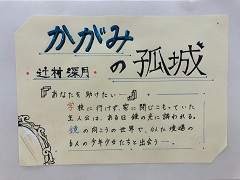 かがみ
の孤城
辻村深月
あなたを助けたい
学校に行けず、家に閉じこもっていた
主人公は、ある日鏡の光に誘われる。
鏡の向こうの世界で、似た境遇の
6人の少年少女たちと出会う―。